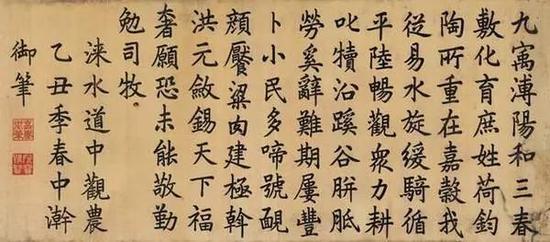 九寓溥陽和三春
敷化育庶姓荷鈞
陶所重在嘉穀我
從易水旋緩騎循
平陸暢觀衆力耕
叱犢沿蹊谷胼胝
勞奚辭難期屢豐
卜小民多啼號靦
顏饜粱肉建極斡
洪元斂錫天下福
奢願恐未能敬勤
勉司牧
淶水道中觀農
乙丑季春中澣
御筆